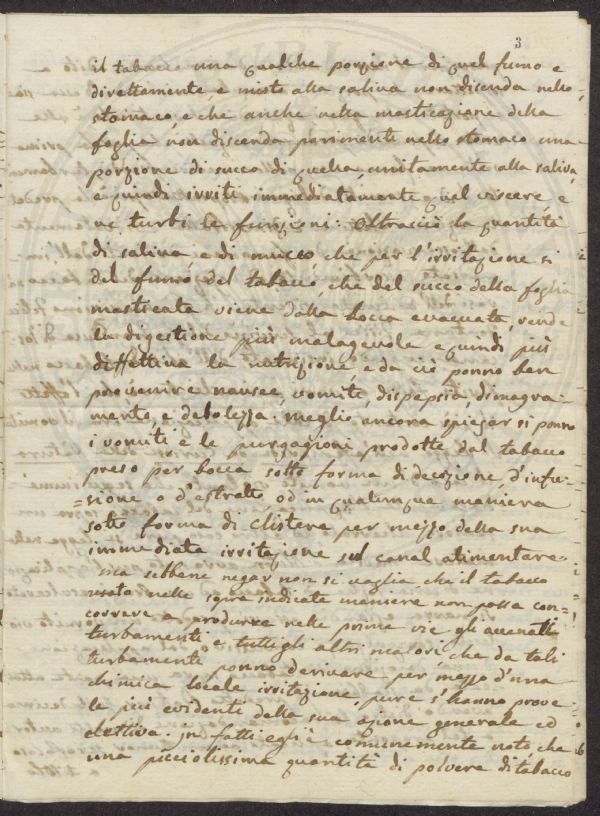 3
il tabacco una qualche porzione di quel fumo e
direttamente, e misto alla saliva non discenda nello
stomaco, e che anche nella masticazione della
foglia non discenda parimenti nello stomaco una
porzione di succo di quella, unitamente alla saliva,
e quindi irriti immediatamente quel viscere, e
ne turbi le funzioni. Oltracciò la quantità
di saliva e di mucco, che per l'irritazione si
del fumo del tabacco, che del succo della foglia
masticata viene dalla bocca evacuata, rende
la digestione più malagevole e quindi più
diffettiva la nutrizione, e da ciò ponno ben
provenire nausee, vomiti, dispepsia, dimagra-
mento, e debolezza. Meglio ancora spiegar si ponno
i vomiti e le purgagioni prodotte dal tabacco
preso per bocca sotto forma di decozione, d'infu-
sione o d'estratto, od in qualunque maniera
sotto forma di clistere per mezzo della sua
immediata irritazione sul canal alimentare.
Ma sebbene negar non si voglia che il tabacco
usato nelle sopra indicate maniere non possa con=
correre a produrre nelle prime vie gli accenati
turbamenti e tutti gli altri malori, che da tali
turbamenti ponno derivare per mezzo d'una
chimica locale irritazione, pure s'hanno prove
le più evidenti della sua azione generale ed
elettiva. In fatti egli è comunemente noto che
una picciolissima quantità di polvere di tabacco